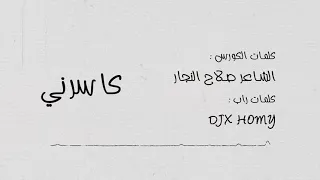 كلمات الكورس :
الشاعر صلاح النجار
كلمات راب :
DJX HOMY
كاسرني